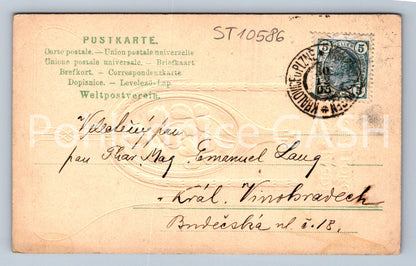 ST10586
POSTKARTE.
Carte postale. – Union postale universelle
Unione postale universale. – Briefkaart
Brefkort. – Correspondentkarte
Dopisnice. – Levelező-Lap
Weltpostverein.
5 5
KRALOVICE u PLZNĚ
Velectěný pan
pan Phar. Mag. Emanuel Lang
Král. Vinohradech
Budečská ul. č. 18.